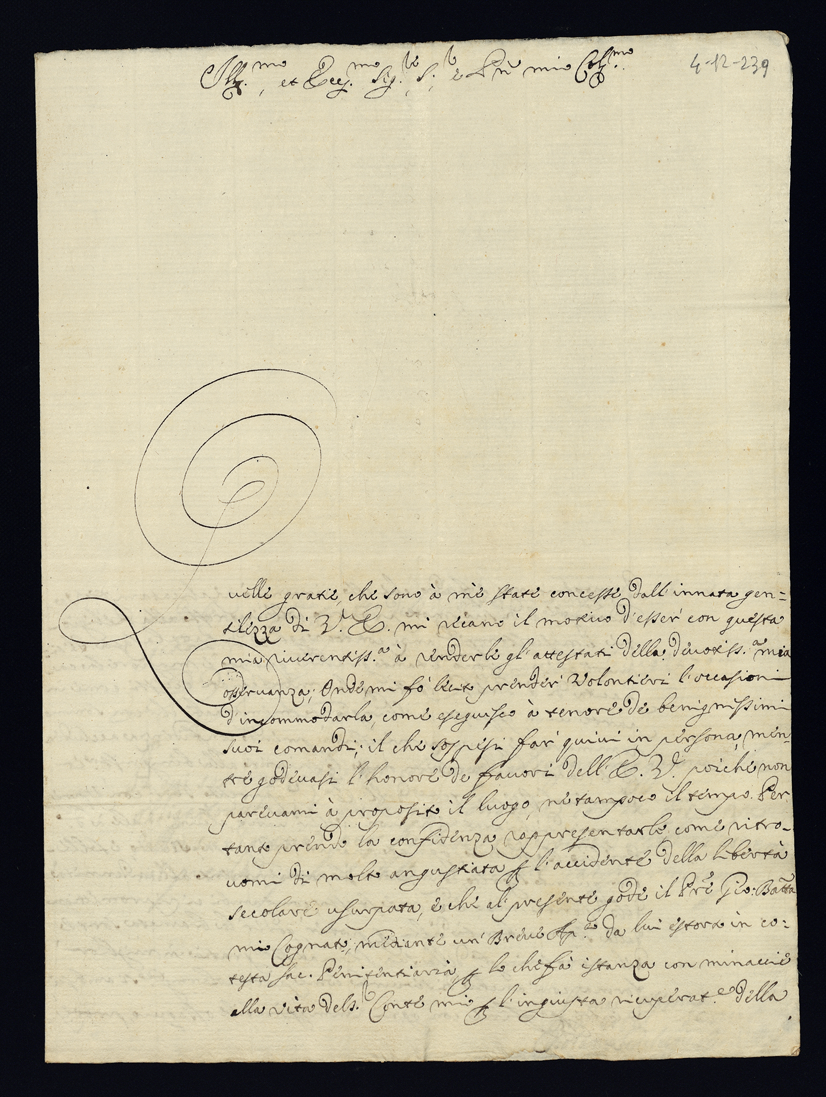 Ill.mo, et Ecc.mo Sig.re S.r e Pñ mio Col.mo
4-12-239
Quelle gratie, che sono à me state concesse dall'innata gen=
tilezza di V.ra E. mi recano il motivo d'esser con questa
mia riverentiss.a à renderle gl'attestati della devotiss.a mia
osservanza; Onde mi fò lecito prender volontieri l'occasioni
d'incommodarla, come eseguisco à tenore de benignissimi
suoi comandi; il che sospesi far quivi in persona, men=
tre godevasi l'honore de favori dell'E. V.ra poiche non
parevami à proposito il luogo, ne tampoco il tempo. Per
tanto prendo la confidenza rappresentarle come ritro=
vomi di molto angustiata p l'accidente della libertà
secolare usurpata, e che al presente gode il Pre Gio: Batta
mio Cognato, mediante un' Breve Ap.co da lui estorto in co=
testa Sac. Penitentiaria p lo che fà istanza con minaccie
alla vita del S.r Conte mio p l'ingiusta recuperat.e della